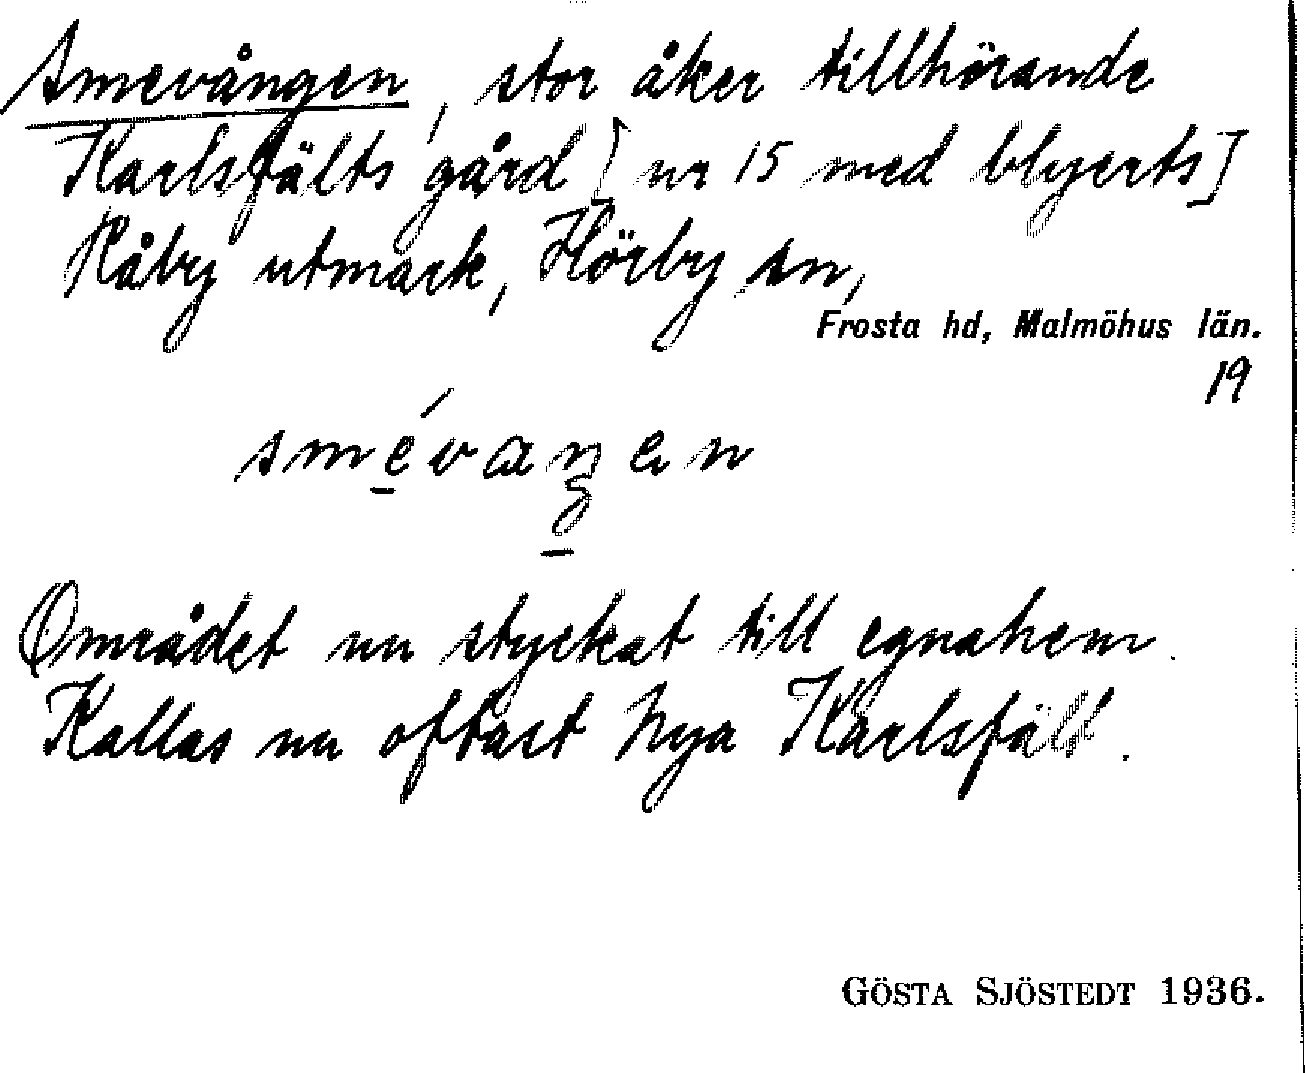 Smevången, stor åker tillhörande
Karlsfälts gård [nr 15 med blyerts]
Råby utmark, Hörby sn,
Frosta hd, Malmöhus län.
19
smévaŋen
Området nu styckat till egnahem.
Kallas nu oftast Nya Karlsfält.
GÖSTA SJÖSTEDT 1936.